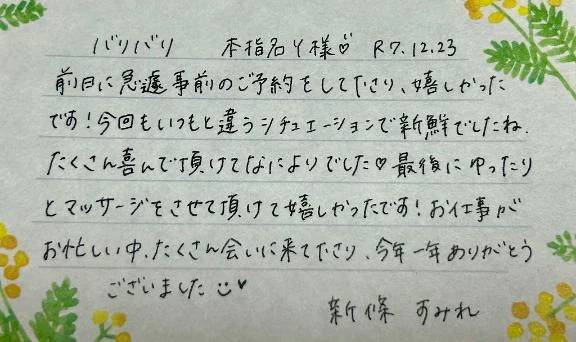 バリバリ 本指名Y様♡ R7.12.23
前日に急遽事前のご予約をして下さり、嬉しかった
です！今回もいつもと違うシチュエーションで新鮮でしたね。
たくさん喜んで頂けてなによりでした♡最後にゆったり
とマッサージをさせて頂けて嬉しかったです！お仕事が
お忙しい中、たくさん会いに来て下さり、今年一年ありがとう
ございました
新條 すみれ